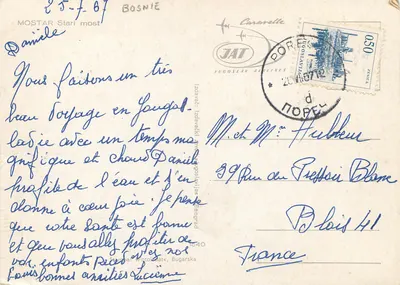 25-7-67
BOSNIE
MOSTAR Stari most
Danièle
Nous faisons un très
beau voyage en Yougos-
lavie avec un temps ma
gnifique et chaud Danièle
profite de l'eau et s'en
donne à cœur joie. je pense
que votre santé est bonne
et que vous allez profiter de
vos enfants
nos
bonnes amitiés Lucienne
Caravelle
JAT
YUGOSLAV AIRLINES
POREČ
67 18
d
ПОРЕЧ
0,50
M. et Mme
39 Rue du Pressoir Blanc
Blois 41
France